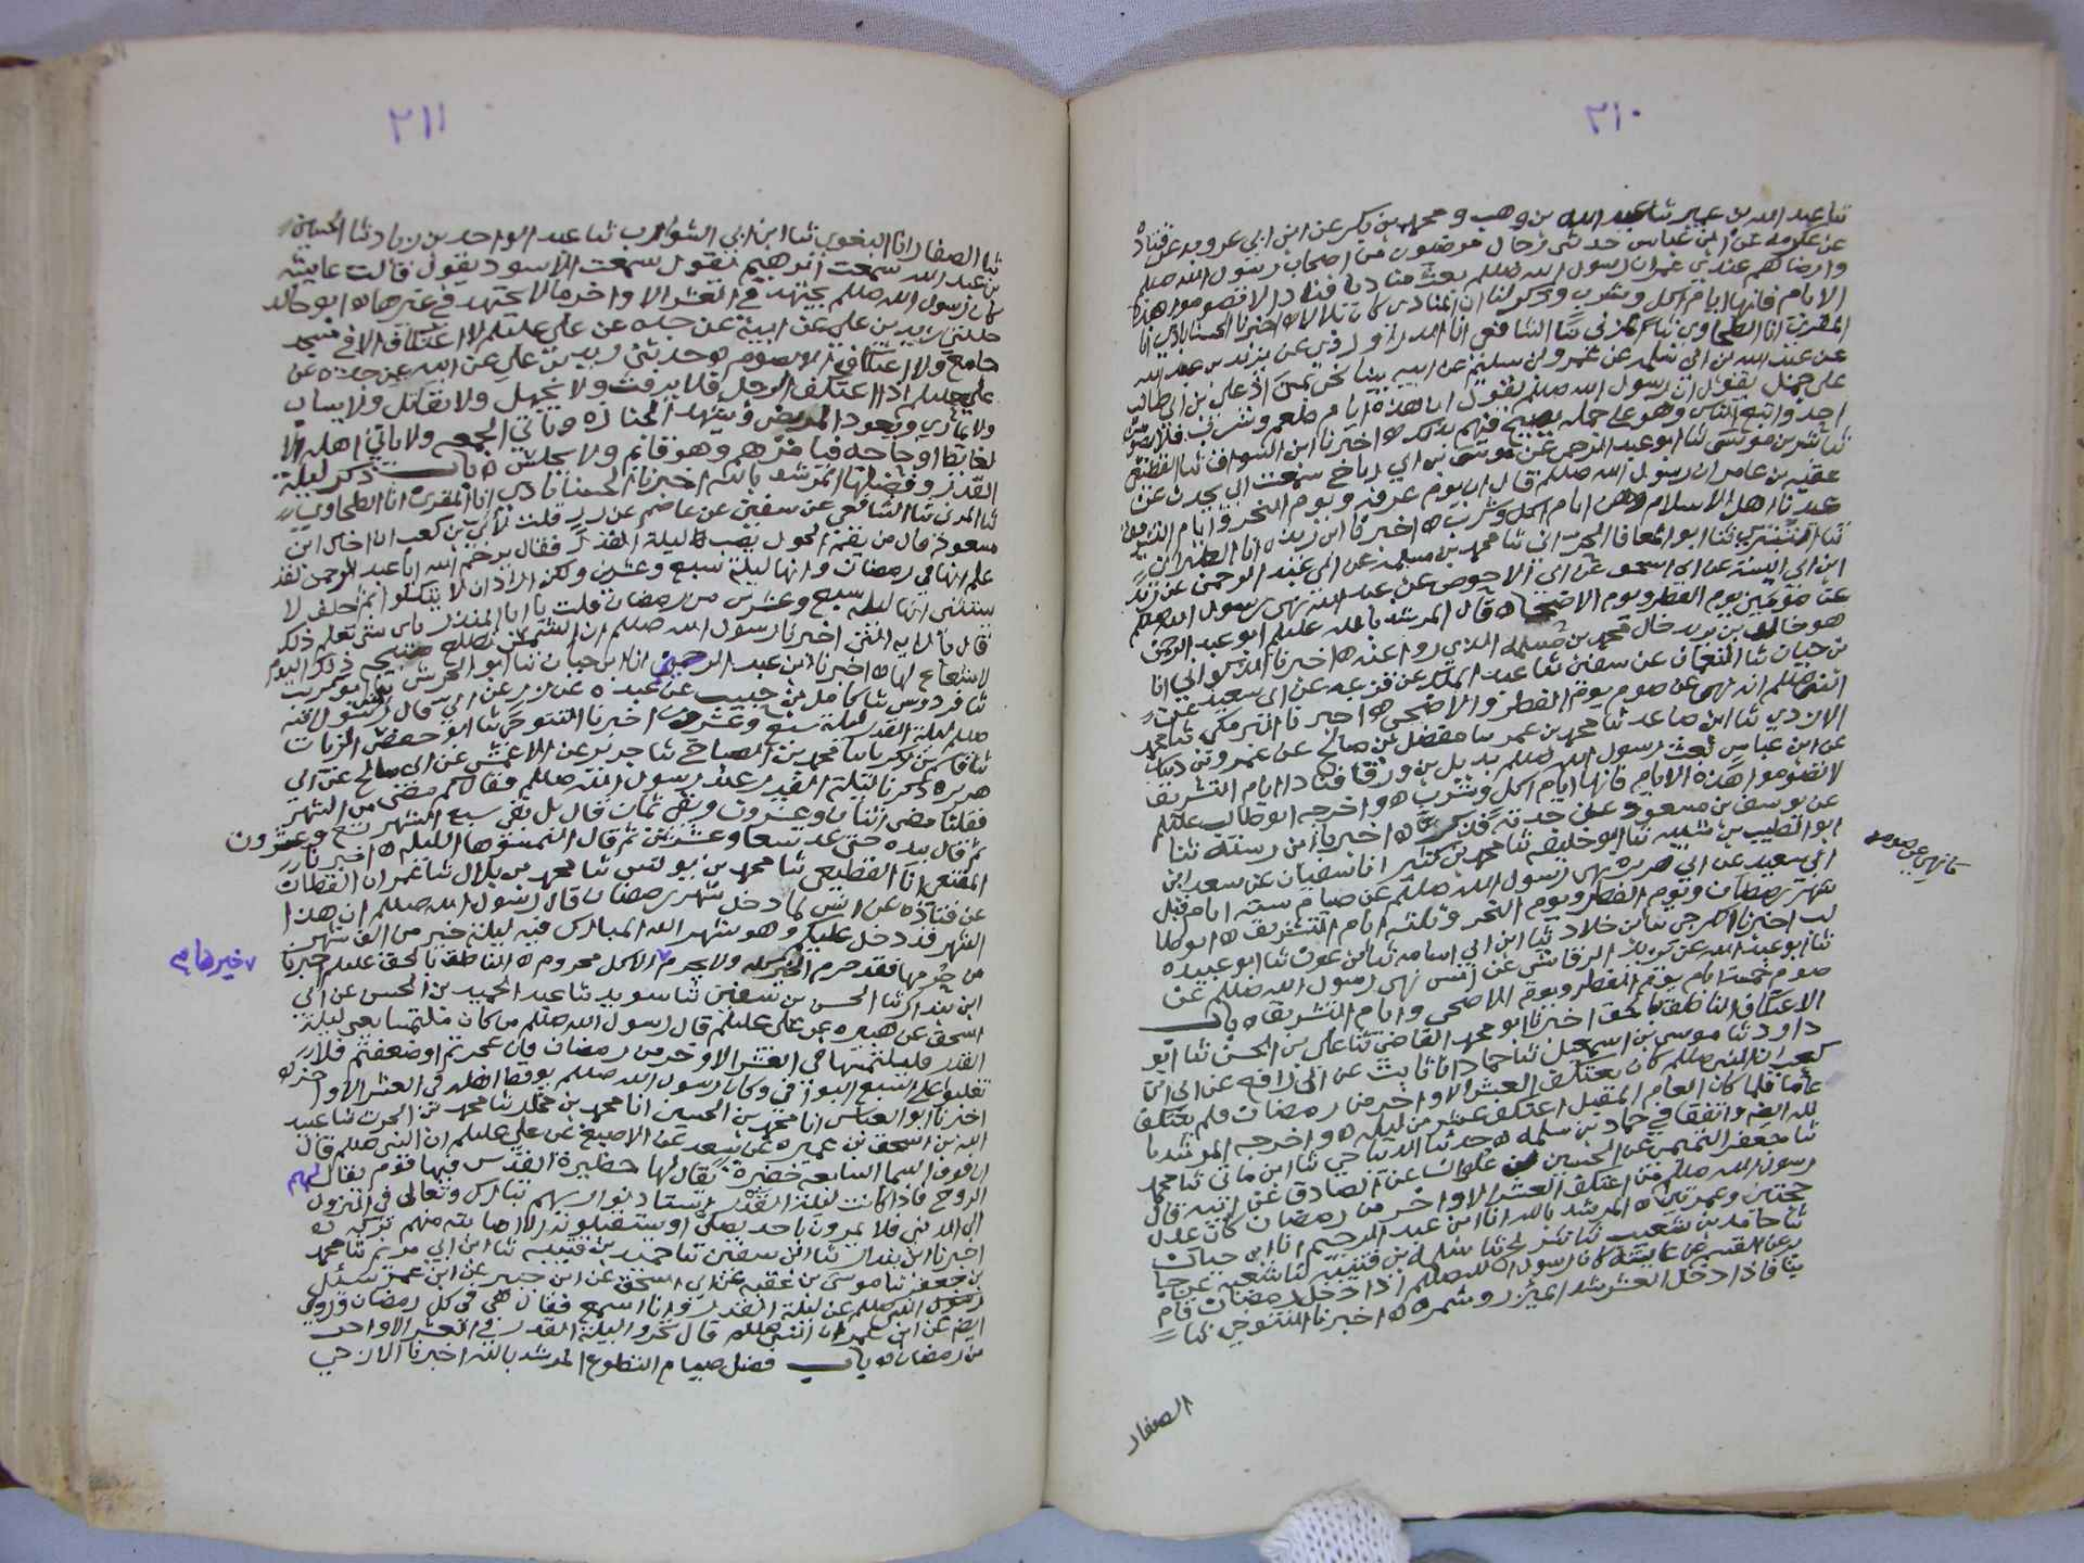 ٣١٠
ثنا عبد الله بن عمير ثنا عبد الله بن وهب و محمد بن بكر عن ابن ابي عروبه عن قتاده
عن عكرمه عن ابن عباس حدثني رجال مرضيون من اصحاب رسول الله صللم
وارضاهم عندي عمر ان رسول الله صللم بعث مناديا فنادا لا تصوموا هذه
الايام فانها ايام اكل وشرب وذكر لنا ان المنادي كان بلالا ه اخبرنا الحسنابادي انا
المقري انا الطحاوي ثنا المزني ثنا الشافعي انا الدراوردي عن يزيد بن عبد الله
عن عبد الله بن ابي سلمه عن عمرو بن سليم عن ابيه بينا نحن بمنى اذ علي بن ابي طالب
على جمل يقول ان رسول الله صللم يقول ان هذه ايام طعم وشرب فلا يصومن
احد واتبع الناس وهو على جمله يصيح فيهم بذلك ه اخبرنا ابن السواق ثنا القطيعي
ثنا بشر بن موسى ثنا ابو عبد الرحمن عن موسى بن علي بن رباح سمعت ابي يحدث عن
عقبه بن عامر ان رسول الله صللم قال ان يوم عرفه ويوم النحر وايام التشريق
عيدنا اهل الاسلام وهن ايام اكل وشرب ه اخبرنا ابن ريذه انا الطبراني
ثنا التستري ثنا ابو المعافا الحراني ثنا محمد بن سلمه عن ابي عبد الرحمن عن زيد
ابن ابي انيسه عن ابي اسحق عن ابي الاحوص عن عبد الله نهى رسول الله صللم
عن صومين يوم الفطر ويوم الاضحى ه قال المرشد بالله عليلم ابو عبد الرحمن
هو خالد بن يزيد خال محمد بن سلمه الذي روا عنه ه اخبرنا الذكواني انا
بن حيان ثنا النعمان عن سفين ثنا عبد الملك عن قزعه عن ابي سعيد عن
النبي صللم انه نهى عن صوم يوم الفطر والاضحى ه اخبرنا البرمكي ثنا محمد
الازدي ثنا ابن صاعد ثنا محمد بن عمر ثنا مفضل بن صالح عن عمرو بن دينار
عن ابن عباس بعث رسول الله صللم بديل بن ورقا فنادا ايام التشريق
لا تصوموا هذه الايام فانها ايام اكل وشرب ه واخرجه ابو طالب عليلم
عن يوسف بن مسعود عن جدته فذكره ه اخبرنا ابن رسته ثنا
ابو الطيب بن شيبه ثنا ابو خليفه ثنا محمد بن كثير انا سفيان عن سعد ابن
ابي سعيد عن ابي هريره نهى رسول الله صللم عن صيام سته ايام قبل
شهر رمضان ويوم الفطر ويوم النحر وثلثه ايام التشريق ه ابو طا
لب اخبرنا ثنا بن خلاد ثنا ابن ابي اسامه ثنا بن عون ثنا ابو عبيده
ثنا ابو عبد الله عن يزيد الرقاشي عن انس نهى رسول الله صللم عن
صوم خمسه ايام يوم الفطر ويوم الاضحى وايام التشريق ه باب
الاعتكاف الناطق بالحق اخبرنا ابو محمد القاضي ثنا علي بن الحسن ثنا ابو
داود ثنا موسى بن اسمعيل ثنا حماد انا ثابت عن ابي رافع عن ابي ابن
كعب ان النبي صللم كان يعتكف العشر الاواخر من رمضان فلم يعتكف
عاما فلما كان العام المقبل اعتكف عشرين ليله ه واخرجه المرشد با
لله ايضا واتفقا في حماد بن سلمه ه حدثنا الديباجي ثنا ابن ماتى ثنا محمد
ثنا جعفر التميمي عن الحسين بن علوان عن الصادق عن ابيه قال
رسول الله صللم من اعتكف العشر الاواخر من رمضان كان عدل
حجتين وعمرتين ه المرشد بالله انا ابن عبد الرحيم انا ابن حيان
ثنا حامد بن شعيب ثنا سلمه بن قتيبه ثنا شعبه عن جا
بر عن القسم عن عايشه كان رسول الله صللم اذا دخل رمضان قام
ينا فاذا دخل العشر شد الميزر وشمر ه اخبرنا التنوخي ثنا
كا نهى عن صومه
الصفار
٣١١
ثنا الصفار انا البغوي ثنا ابن ابي الشوارب ثنا عبد الواحد بن زياد ثنا الحسن
بن عبد الله سمعت ابرهيم يقول سمعت الاسود يقول قالت عايشه
كان رسول الله صللم يجتهد في العشر الاواخر ما لا يجتهد في غيرها ه ابو خالد
حدثني زيد بن علي عن ابيه عن جده عن علي عليلم لا اعتكاف الا في مسجد
جامع ولا اعتكاف الا بصوم ه حدثني زيد بن علي عن ابيه عن جده عن
علي عليلم اذا اعتكف الرجل فلا يرفث ولا يجهل ولا يقاتل ولا يساب
ولا يماري ويعود المريض ويشهد الجنازه وياتي الجمعه ولا ياتي اهله الا
لغايط او حاجه فيامرهم وهو قائم ولا يجلس ه باب ذكر ليلة
القدر وفضلها المرشد بالله اخبرنا الحسنابادي انا المقري انا الطحاوي
ثنا المزني ثنا الشافعي عن سفين عن عاصم عن زر قلت لابي بن كعب ان اخاك ابن
مسعود قال من يقم الحول يصب ليلة القدر فقال يرحم الله ابا عبد الرحمن لقد
علم انها في رمضان وانها ليلة سبع وعشرين ولكن اراد ان لا يتكلوا ثم حلف لا
يستثني انها ليله سبع وعشرين من رمضان قلت يا ابا المنذر باي شي تعلم ذلك
قال بالايه التي اخبرنا رسول الله صللم ان الشمس تطلع صبيحه ذلك اليوم
لا شعاع لها ه اخبرنا ابن عبد الرحيم انا ابن حيان ثنا ابو الحريش ثنا ابو كريب
ثنا فردوس ثنا كامل بن حبيب عن عبده عن زر عن ابي قال رسول الله
صللم ليلة القدر ليلة سبع وعشرين اخبرنا التنوخي ثنا ابو حفض الزيات
ثنا قاسم بن زكريا ثنا محمد بن الصباح ثنا جرير عن الاعمش عن ابي صالح عن ابي
هريره ذكرنا ليلة القدر عند رسول الله صللم فقال كم مضى من الشهر
فقلنا مضى اثنان وعشرون وبقي ثمان قال بل بقي سبع الشهر تسع وعشرون
ثم قال بيده حتى عد تسعا وعشرين ثم قال التمسوها الليله ه اخبرنا
المقنعي انا القطيعي ثنا محمد بن يونس ثنا محمد بن بلال ثنا عمران القطان
عن قتاده عن انس لما دخل شهر رمضان قال رسول الله صللم ان هذا
الشهر قد دخل عليكم وهو شهر الله المبارك فيه ليلة خير من الف شهر
من حرمها فقد حرم الخير كله ولا يحرم الا كل محروم ه الناطق بالحق عليلم اخبرنا
ابن بندار ثنا الحسن بن سفين ثنا سويد ثنا عبد الحميد بن الحسن عن ابي
اسحق عن هبيره عن علي عليلم قال رسول الله صللم من كان ملتمسا يعني ليلة
القدر فليلتمسها في العشر الاواخر من رمضان وان عجزتم او ضعفتم فلا
تغلبوا على السبع البواقي وكان رسول الله صللم يوقظ اهله في العشر الاواخر ه
اخبرنا ابو العباس انا محمد بن الحسين انا محمد بن مخلد ثنا محمد بن الحرث ثنا عبيد
الله بن اسحق بن عميره عن سعد عن الاصبغ عن علي عليلم ان النبي صللم قال
ان فوق السما السابعه حضيره يقال لها حظيرة القدس فيها قوم يقال لهم
الروح فاذا كانت ليلة القدر استاذنوا ربهم تبارك وتعالى في النزول
الى الدنيا فلا يمرون باحد يصلي او يستقبلونه الا اصابته منهم بركه ه
اخبرنا ابن بندار ثنا ابن سفين ثنا حميد بن قتيبه ثنا ابن ابي مريم ثنا محمد
بن جعفر ثنا موسى بن عقبه عن ابي اسحق عن ابن جبير عن ابن عمر سئل
رسول الله صللم عن ليلة القدر وانا اسمع فقال هي في كل رمضان وروي
ايضا عن ابن عمر ان النبي صللم قال تحروا ليلة القدر في العشر الاواخر
من رمضان ه باب فضل صيام التطوع المرشد بالله اخبرنا الازجي
خيرها م